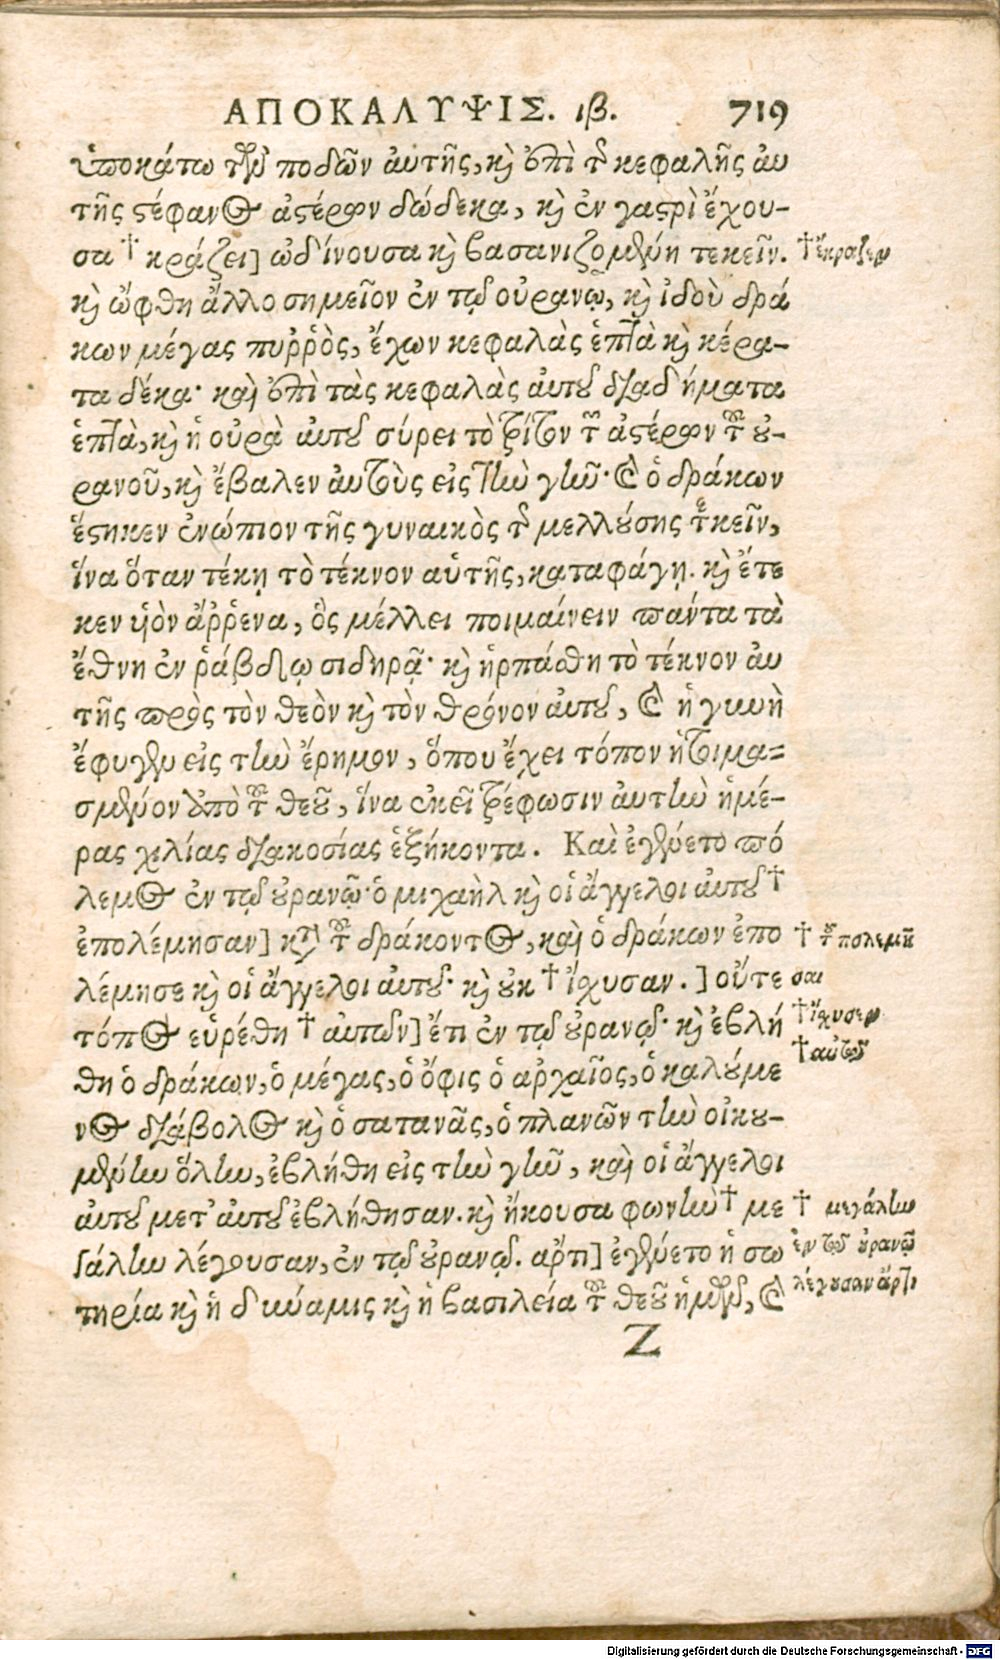 ΑΠΟΚΑΛΥΨΙΣ. ιβ. 719
ὑποκάτω τῶν ποδῶν ἀυτῆς, κὶ ἐπὶ τ͂ κεφαλῆς ἀυ
τῆς ϛέφανος ἀϛέρων δώδεκα, κὶ ἐν γαϛρὶ ἔχου-
σα † κράζει] ὠδίνουσα κὶ βασανιζομένη τεκεῖν. † ἔκραζεν
κὶ ὤφθη ἄλλο σημεῖον ἐν τῷ οὐρανῷ, κὶ ἰδοὺ δρά
κων μέγας πυῤῥὸς, ἔχων κεφαλὰς ἑπτὰ κὶ κέρα-
τα δέκα· καὶ ἐπὶ τὰς κεφαλὰς ἀυτȣ διαδήματα
ἑπτὰ, κὶ ἡ οὐρὰ ἀυτȣ σύρει τὸ τρίτον τῶν ἀϛέρων τοῦ ȣ-
ρανοῦ, κὶ ἔβαλεν ἀυτοὺς εἰς τὴν γῆν· καὶ ὁ δράκων
ἕϛηκεν ἐνώπιον τῆς γυναικὸς τ͂ μελλȣσης τεκεῖν,
ἵνα ὅταν τέκῃ τὸ τέκνον αὑτῆς, καταφάγῃ. κὶ ἔτε
κεν υἱὸν ἄῤῥενα, ὃς μέλλει ποιμαίνειν πάντα τὰ
ἔθνη ἐν ῥάβδῳ σιδηρᾷ· κὶ ἡρπάσθη τὸ τέκνον ἀυ
τῆς πρὸς τὸν θεὸν κὶ τὸν θρόνον ἀυτȣ, καὶ ἡ γυνὴ
ἔφυγεν εἰς τὴν ἔρημον, ὅπου ἔχει τόπον ἡτοιμα-
σμένον ἀπὸ τοῦ θεȣ, ἵνα ἐκεῖ τρέφωσιν ἀυτὴν ἡμέ-
ρας χιλίας διακοσίας ἑξήκοντα. Καὶ ἐγένετο πό
λεμος ἐν τῷ ȣρανῷ· ὁ μιχαὴλ κὶ οἱ ἄγγελοι ἀυτȣ †
ἐπολέμησαν] κτ̀ τοῦ δράκοντος, καὶ ὁ δράκων ἐπο † τοῦ πολεμῆ
λέμησε κὶ οἱ ἄγγελοι ἀυτȣ· κὶ ȣκ † ἴχυσαν.] οὔτε σαι
τόπος εὑρέθη † ἀυτῶν] ἔτι ἐν τῷ ȣρανῷ· κὶ ἐβλή † ἴχυσεν
† αὐτῷ
θη ὁ δράκων, ὁ μέγας, ὁ ὄφις ὁ αρχαῖος, ὁ καλȣμε
νος διάβολος κὶ ὁ σατανᾶς, ὁ πλανῶν τὴν οἰκȣ-
μένην ὅλην, ἐβλήθη εἰς τὴν γῆν, καὶ οἱ ἄγγελοι
ἀυτȣ μετ' ἀυτȣ ἐβλήθησαν. κὶ ἤκουσα φωνὴν † με † μεγάλην
γάλην λέγουσαν, ἐν τῷ ȣρανῷ. αρτι] ἐγένετο ἡ σω ἐν τῷ ȣρανῷ
τηρία κὶ ἡ δύναμις κὶ ἡ βασιλεία τοῦ θεȣ ἡμῶν, καὶ λέγȣσαν ἄρτι
Z
Digitalisierung gefördert durch die Deutsche Forschungsgemeinschaft - DFG